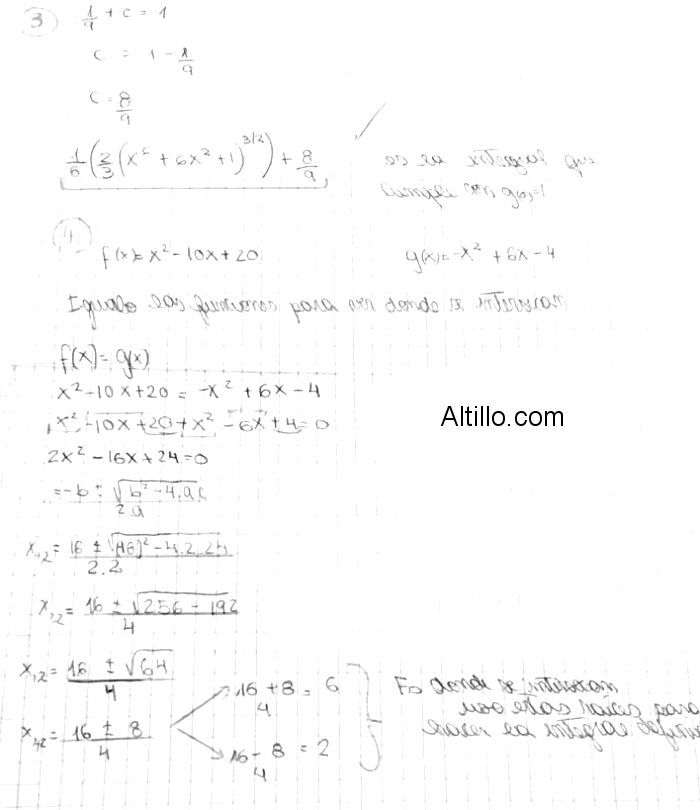 3
1/9 + c = 1
c = 1 - 1/9
c = 8/9
1/6 (2/3 (x^6 + 6x^2 + 1)^3/2) + 8/9
es la integral que
cumple con g(0)=1
4
f(x)= x^2 - 10x + 20 g(x)= -x^2 + 6x - 4
Igualo las funciones para ver donde se intersecan
f(x) = g(x)
x^2 - 10x + 20 = -x^2 + 6x - 4
x^2 - 10x + 20 + x^2 - 6x + 4 = 0
2x^2 - 16x + 24 = 0
= -b ± √(b^2 - 4.a.c) / 2.a
Altillo.com
x1,2 = 16 ± √((-16)^2 - 4.2.24) / 2.2
x1,2 = 16 ± √(256 - 192) / 4
x1,2 = 16 ± √64 / 4
x1,2 = 16 ± 8 / 4
16 + 8 / 4 = 6
16 - 8 / 4 = 2
Es donde se intersecan
uso estas raíces para
hacer la integral